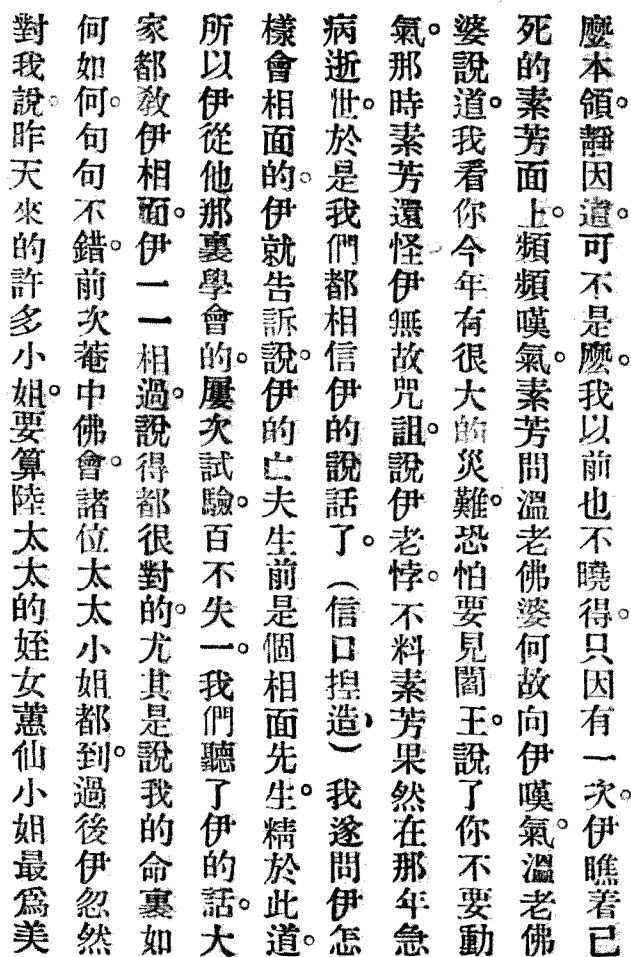 麽本領。靜因道。可不是麽。我以前也不曉得。只因有一次。伊瞧着已
死的素芳面上。頻頻嘆氣。素芳問溫老佛婆何故向伊嘆氣。溫老佛
婆說道。我看你今年有很大的災難。恐怕要見閻王。說了你不要動
氣。那時素芳還怪伊無故咒詛。說伊老悖。不料素芳果然在那年急
病逝世。於是我們都相信伊的說話了。(信口揑造)我遂問伊怎
樣會相面的。伊就告訴說。伊的亡夫生前是個相面先生。精於此道。
所以伊從他那裏學會的。屢次試驗。百不失一。我們聽了伊的話。大
家都敎伊相面。伊一一相過。說得都很對的。尤其是說我的命裏如
何如何。句句不錯。前次菴中佛會。諸位太太小姐都到。過後伊忽然
對我說。昨天來的許多小姐。要算陸太太的姪女蕙仙小姐最爲美